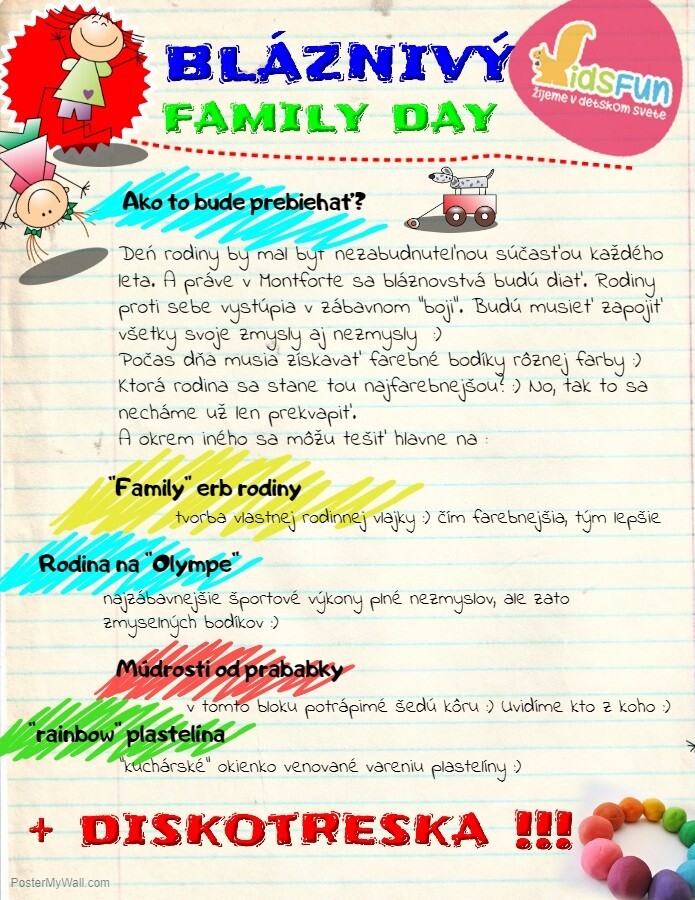 BLÁZNIVÝ
FAMILY DAY
KidsFun
žijeme v detskom svete
Ako to bude prebiehať?
Deň rodiny by mal byť nezabudnuteľnou súčasťou každého
leta. A práve v Montforte sa bláznovstvá budú diať. Rodiny
proti sebe vystúpia v zábavnom "boji". Budú musieť zapojiť
všetky svoje zmysly aj nezmysly :)
Počas dňa musia získavať farebné bodíky rôznej farby :)
Ktorá rodina sa stane tou najfarebnejšou? :) No, tak to sa
necháme už len prekvapiť.
A okrem iného sa môžu tešiť hlavne na :
"Family" erb rodiny
tvorba vlastnej rodinnej vlajky :) čím farebnejšia, tým lepšie
Rodina na "Olympe"
najzábavnejšie športové výkony plné nezmyslov, ale zato
zmyselných bodíkov :)
Múdrosti od prababky
v tomto bloku potrápimé šedú kôru :) Uvidíme kto z koho :)
"rainbow" plastelína
"kuchárské" okienko venované vareniu plastelíny :)
+ DISKOTRESKA !!!
PosterMyWall.com